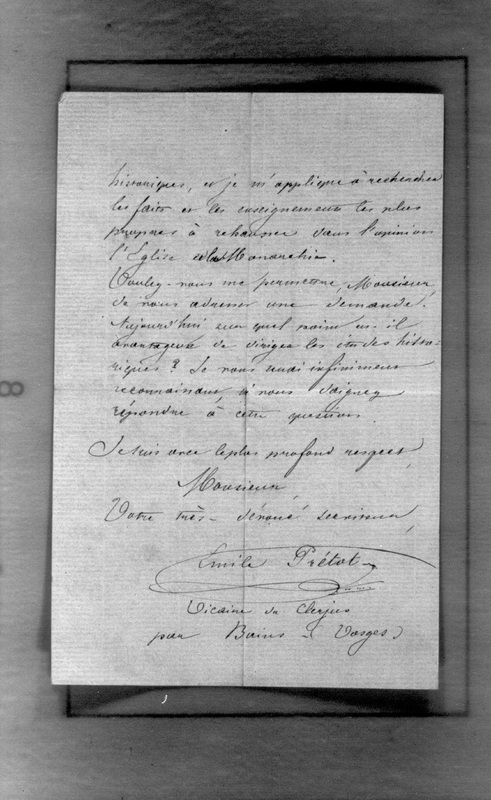 historiques, et je m'applique à rechercher
les faits et les enseignements les plus
propres à rehausser dans l'opinion
l'Eglise et la Monarchie.
Voulez-vous me permettre, Monsieur,
de vous adresser une demande.
Aujourd'hui sur quel point est-il
avantageux de diriger les études histo-
riques? Je vous serai infiniment
reconnaissant, si vous daignez
répondre à cette question.
Je suis avec le plus profond respect,
Monsieur,
Votre très-dévoué serviteur,
Emile Prétot
Vicaire de Clerjus
par Bains (Vosges)
8